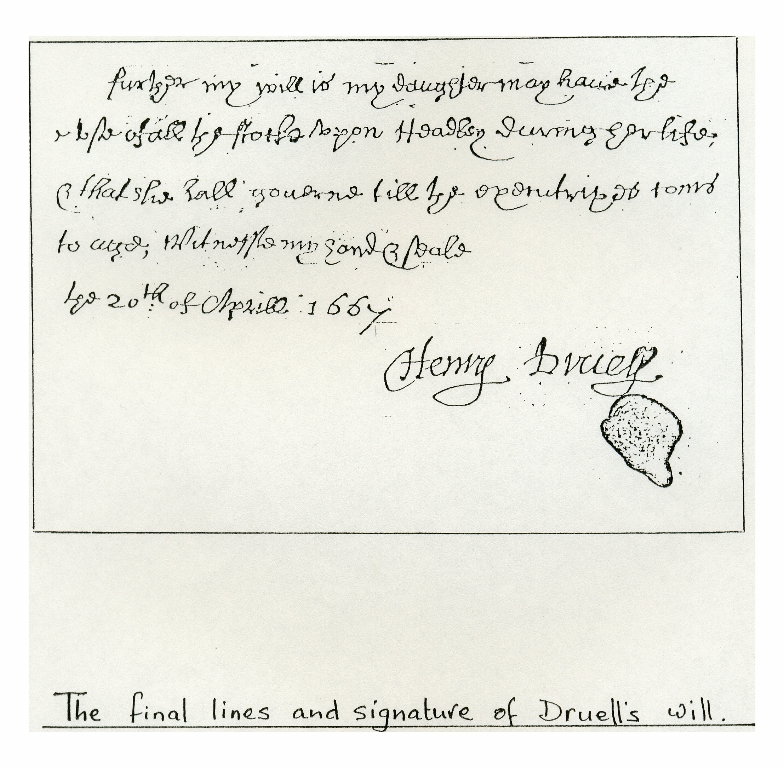 further my will is my daughter may haue the
vse of all the stocke vpon Headley during her life,
& that she shall gouerne till the executrixes coms
to age, Witnesse my hand & seale
the 20th of Aprill 1667
Henry Druell
The final lines and signature of Druell's will.